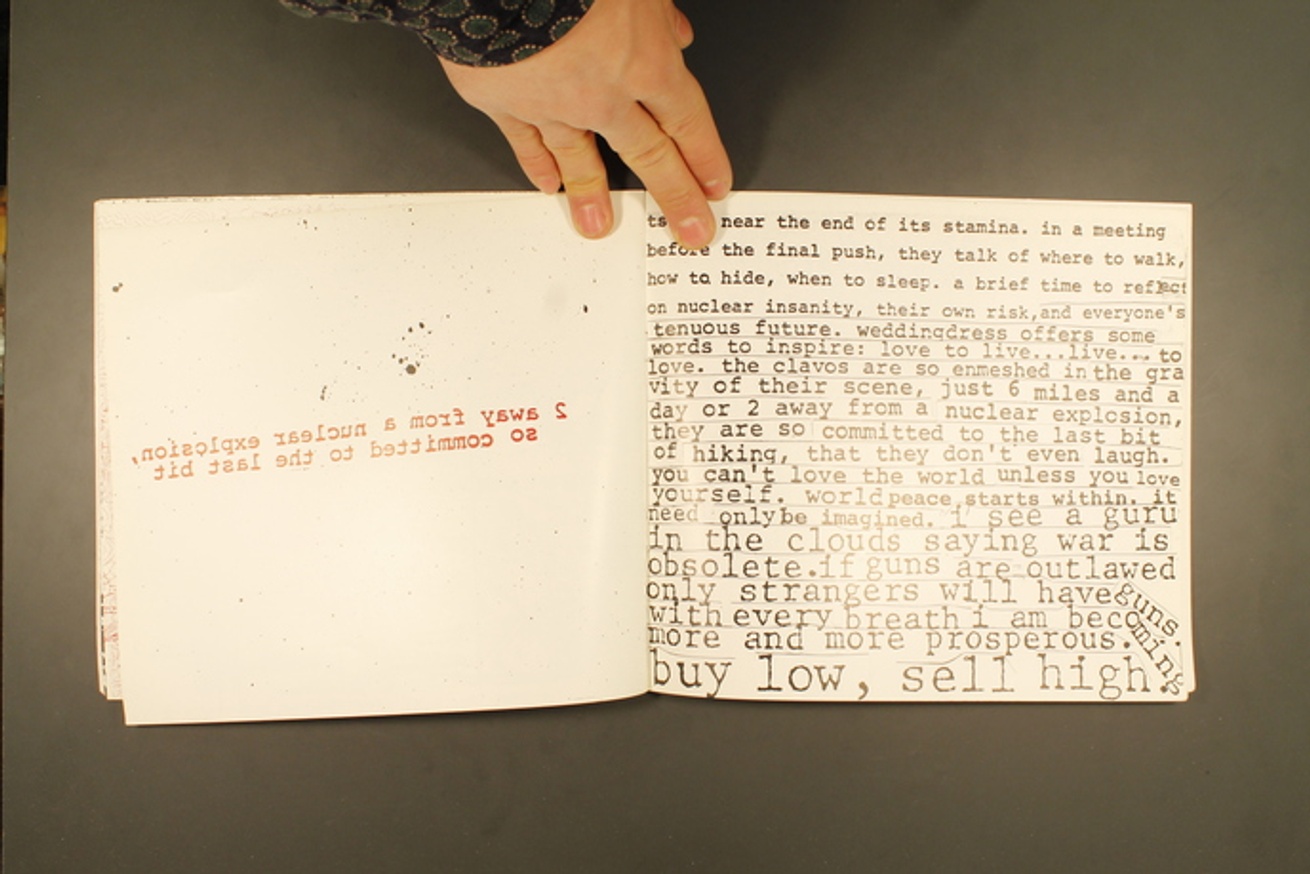 2 away from a nuclear explosion,
so committed to the last bit
ts near the end of its stamina. in a meeting
before the final push, they talk of where to walk,
how to hide, when to sleep. a brief time to reflect
on nuclear insanity, their own risk,and everyone's
tenuous future. weddingdress offers some
words to inspire: love to live...live... to
love. the clavos are so enmeshed in the gra
vity of their scene, just 6 miles and a
day or 2 away from a nuclear explosion,
they are so committed to the last bit
of hiking, that they don't even laugh.
you can't love the world unless you love
yourself. world peace starts within. it
need only be imagined. i see a guru
in the clouds saying war is
obsolete.if guns are outlawed
only strangers will have guns.
with every breath i am becoming
more and more prosperous.
buy low, sell high.